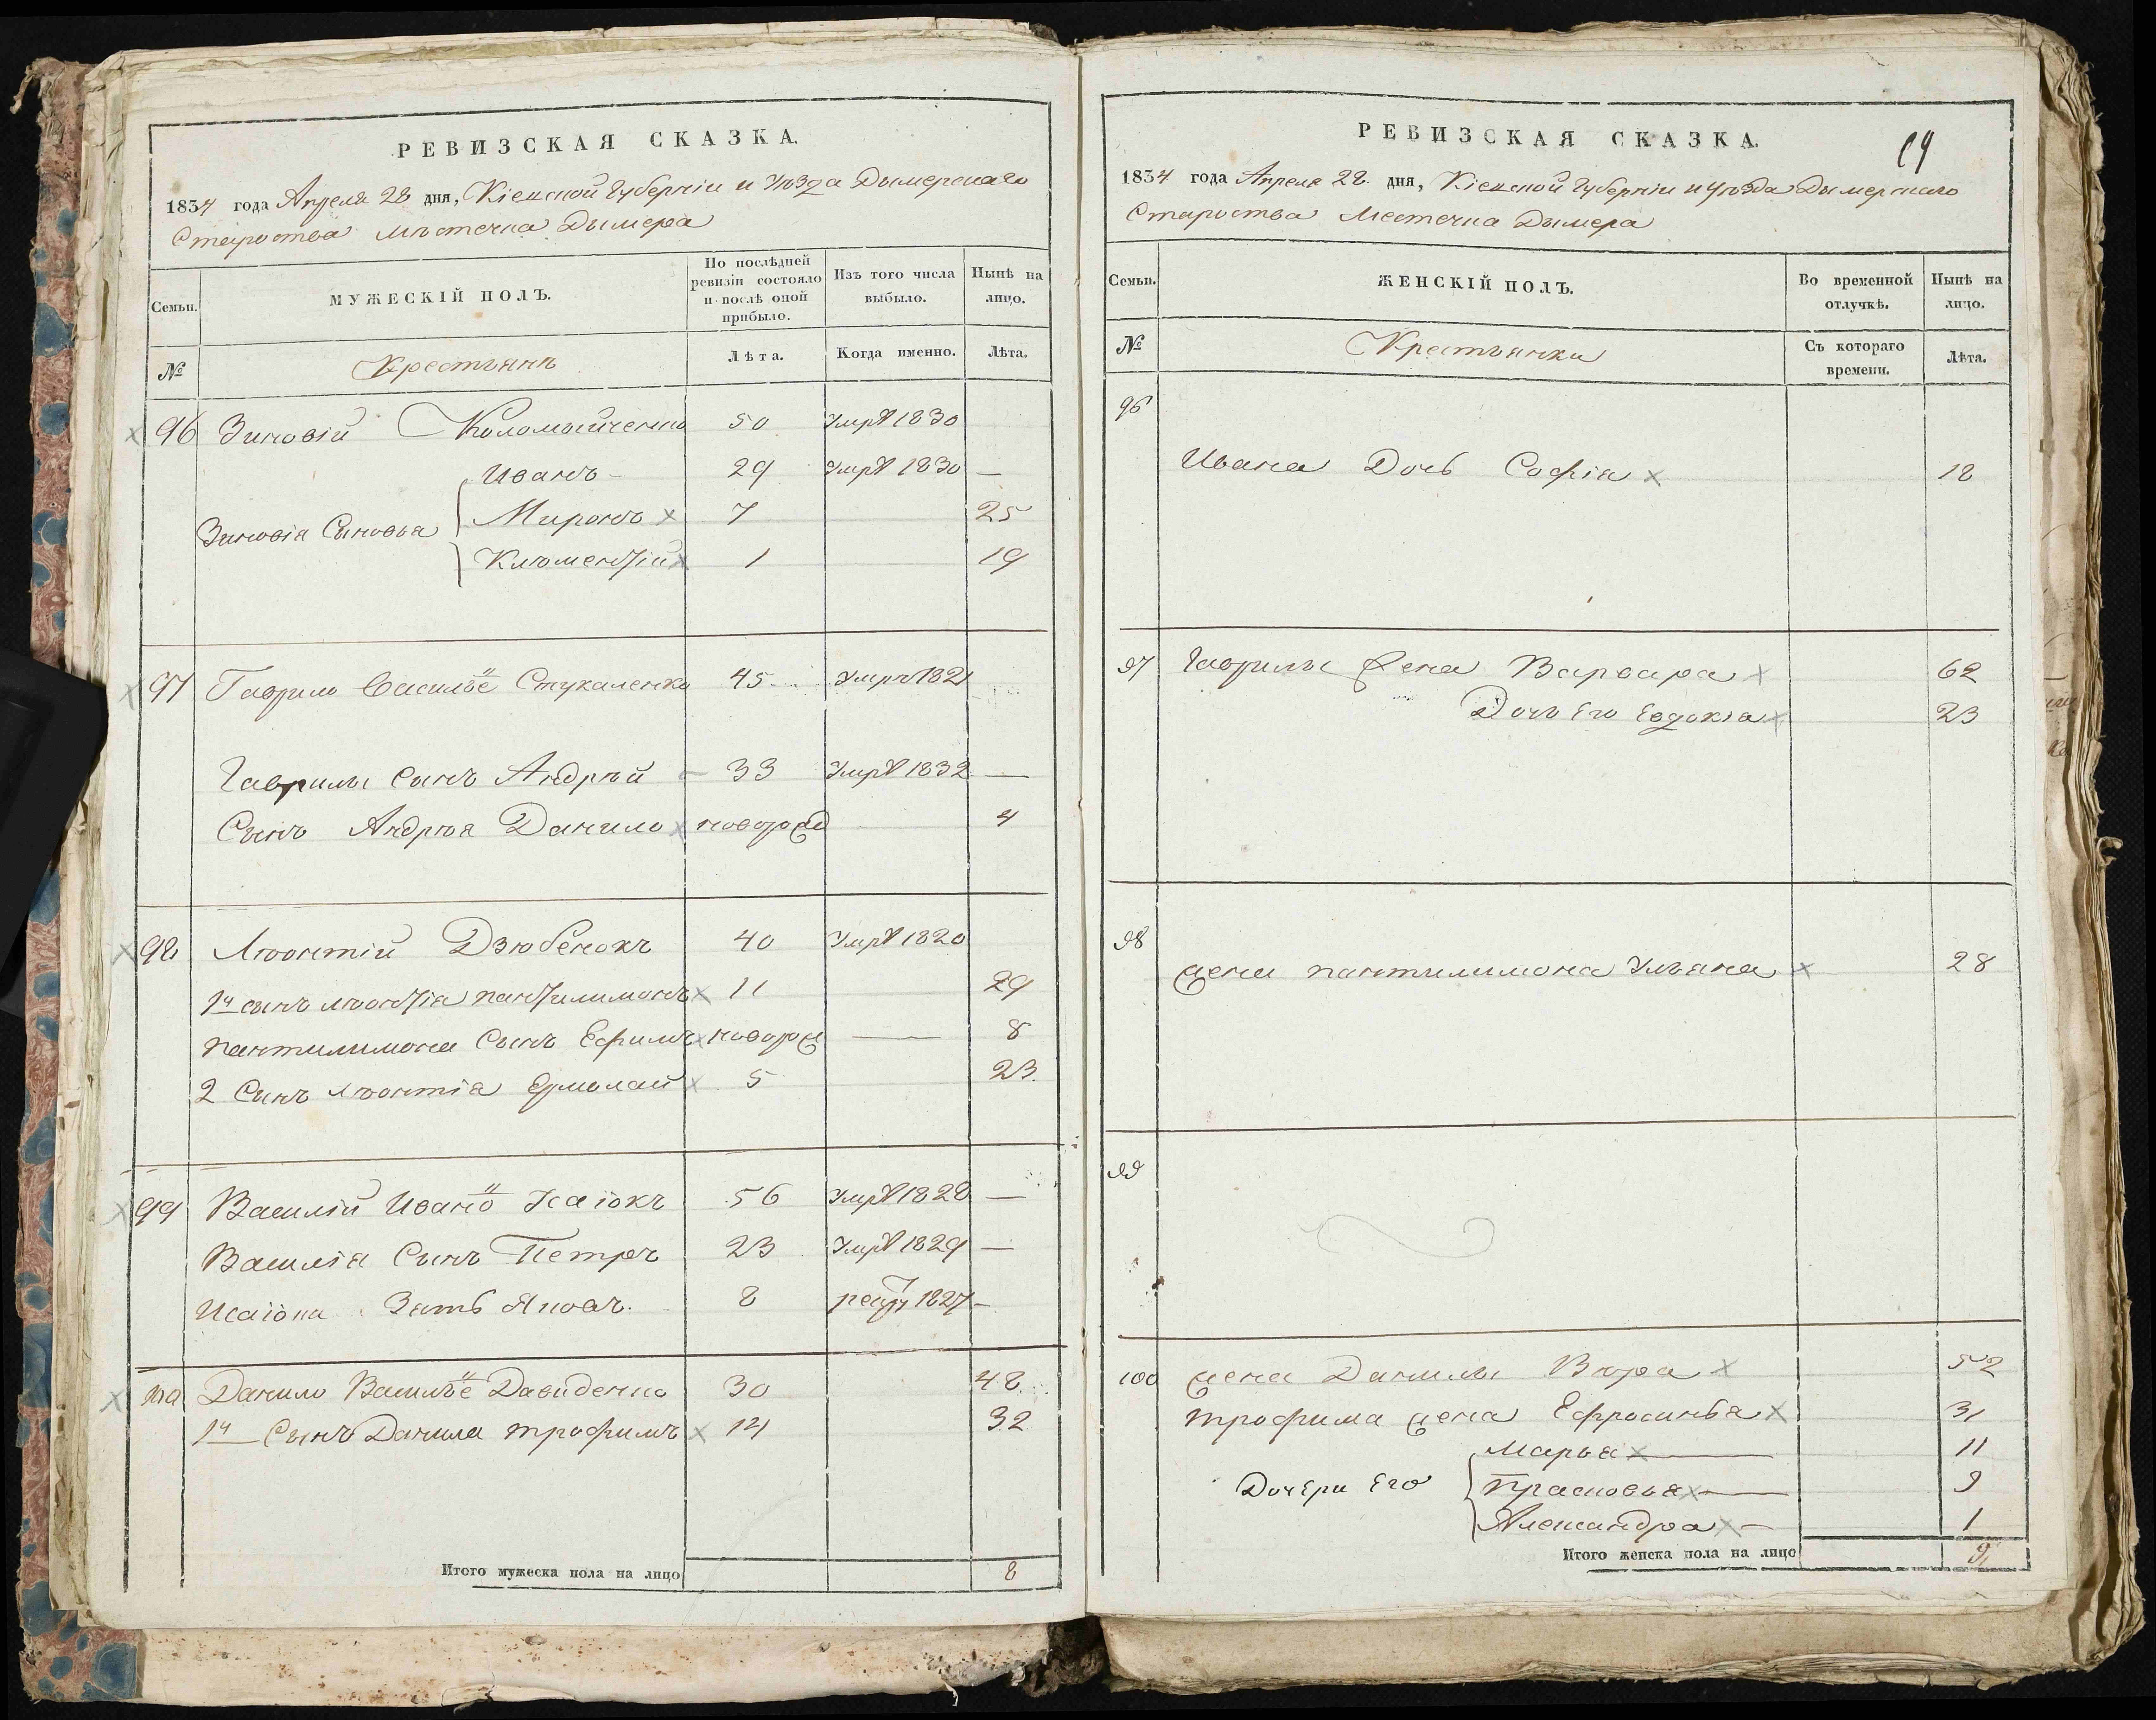 РЕВИЗСКАЯ СКАЗКА.
1834 года Апреля 28 дня, Кіевской Губерніи и Уѣзда Дымерскаго
Староства Мѣстечка Дымера
Семьи.
МУЖЕСКІЙ ПОЛЪ.
По послѣдней ревизіи состояло и послѣ оной прибыло.
Изъ того числа выбыло.
Нынѣ на лицо.
№
Крестьянъ
Лѣта.
Когда именно.
Лѣта.
96 Зиновій Коломыйченко 50 Умръ 1830
Иванъ 29 Умръ 1830 —
Зиновія Сыновья Миронъ 7 25
Клюментій 1 19
97 Гаврило Василье Стукаленко 45 Умръ 1821
Гаврилы Сынъ Андрѣй 33 Умръ 1832 —
Сынъ Андрѣя Данило новорожд 4
98 Лѣонтій Дзюбенокъ 40 Умръ 1820
1й сынъ Лѣонтія Пантилимонъ 11 29
Пантилимона Сынъ Ефимъ новорож — 8
2 Сынъ Лѣонтія Ермолай 5 23.
99 Василій Ивано Исаіокъ 56 Умръ 1828 —
Василія Сынъ Петръ 23 Умръ 1829 —
Исаіока Зять Яковъ. 8 рекру 1827 —
100 Данило Василье Давиденко 30 48
1й Сынъ Данила Трофимъ 14 32
Итого мужеска пола на лицо 8
РЕВИЗСКАЯ СКАЗКА.
1834 года Апреля 28. дня, Кіевской Губерніи и уѣзда Дымерскаго
Староства Местечка Дымера
Семьи.
ЖЕНСКІЙ ПОЛЪ.
Во временной отлучкѣ.
Нынѣ на лицо.
№
Крестьянки
Съ котораго времени.
Лѣта.
96
Ивана Дочь Софія 18
97 Гаврилы Жена Варвара 62
Дочь Его Евдокія 23
98
жена Пантилимона Ульяна 28
99
100 жена Данилы Вѣра 52
Трофима жена Ефросинья 31
Марья 11
Дочери Его Прасковья 9
Александра 1
Итого женска пола на лицо 9